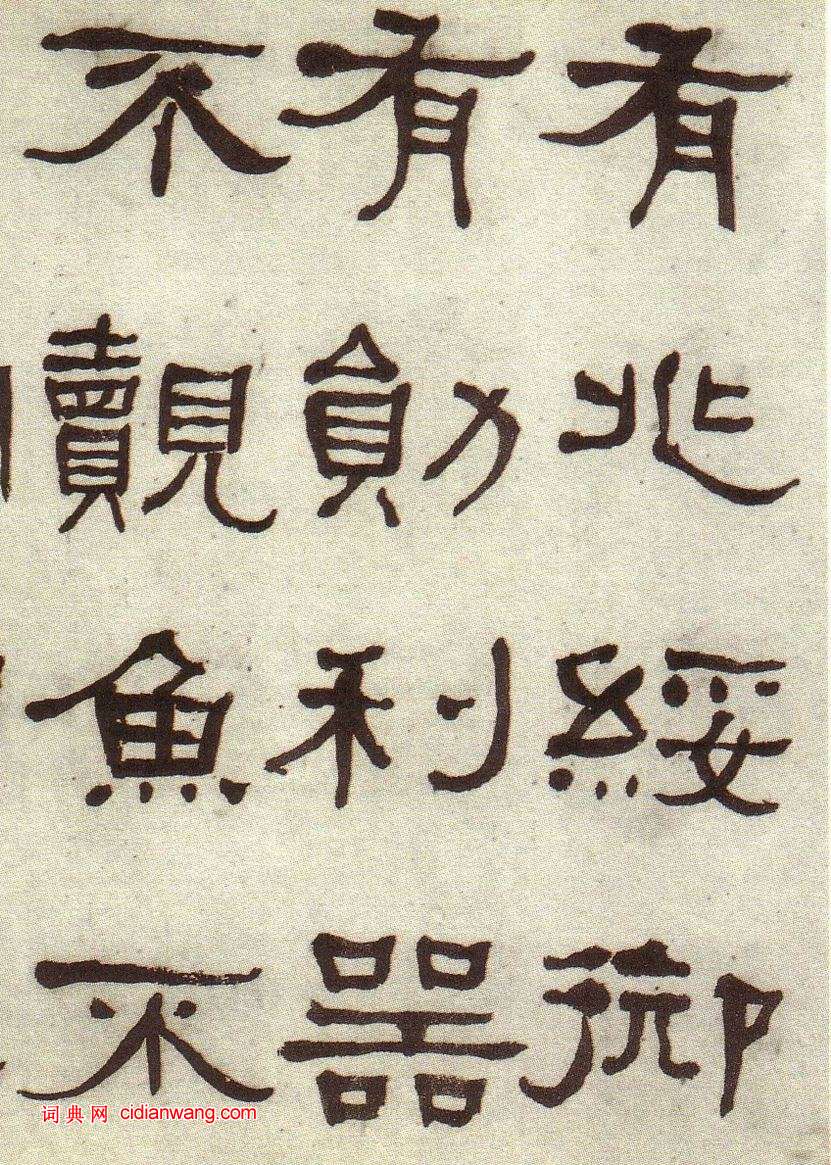 有兆綏御
有勛利器
不覿魚不
词典网 cidianwang.com